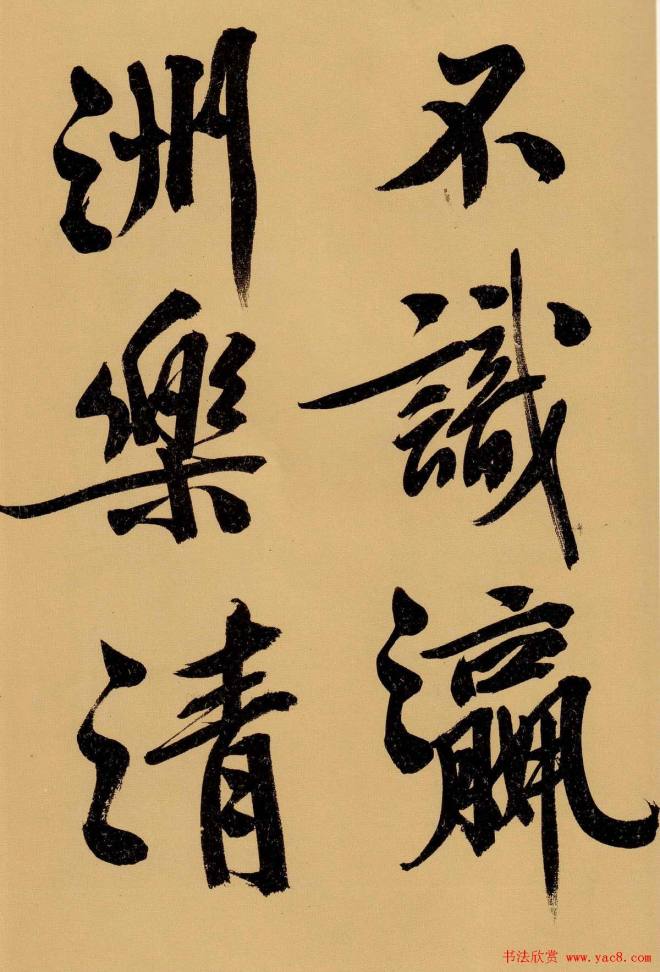 不識瀛
洲樂清
书法欣赏 www.yac8.com